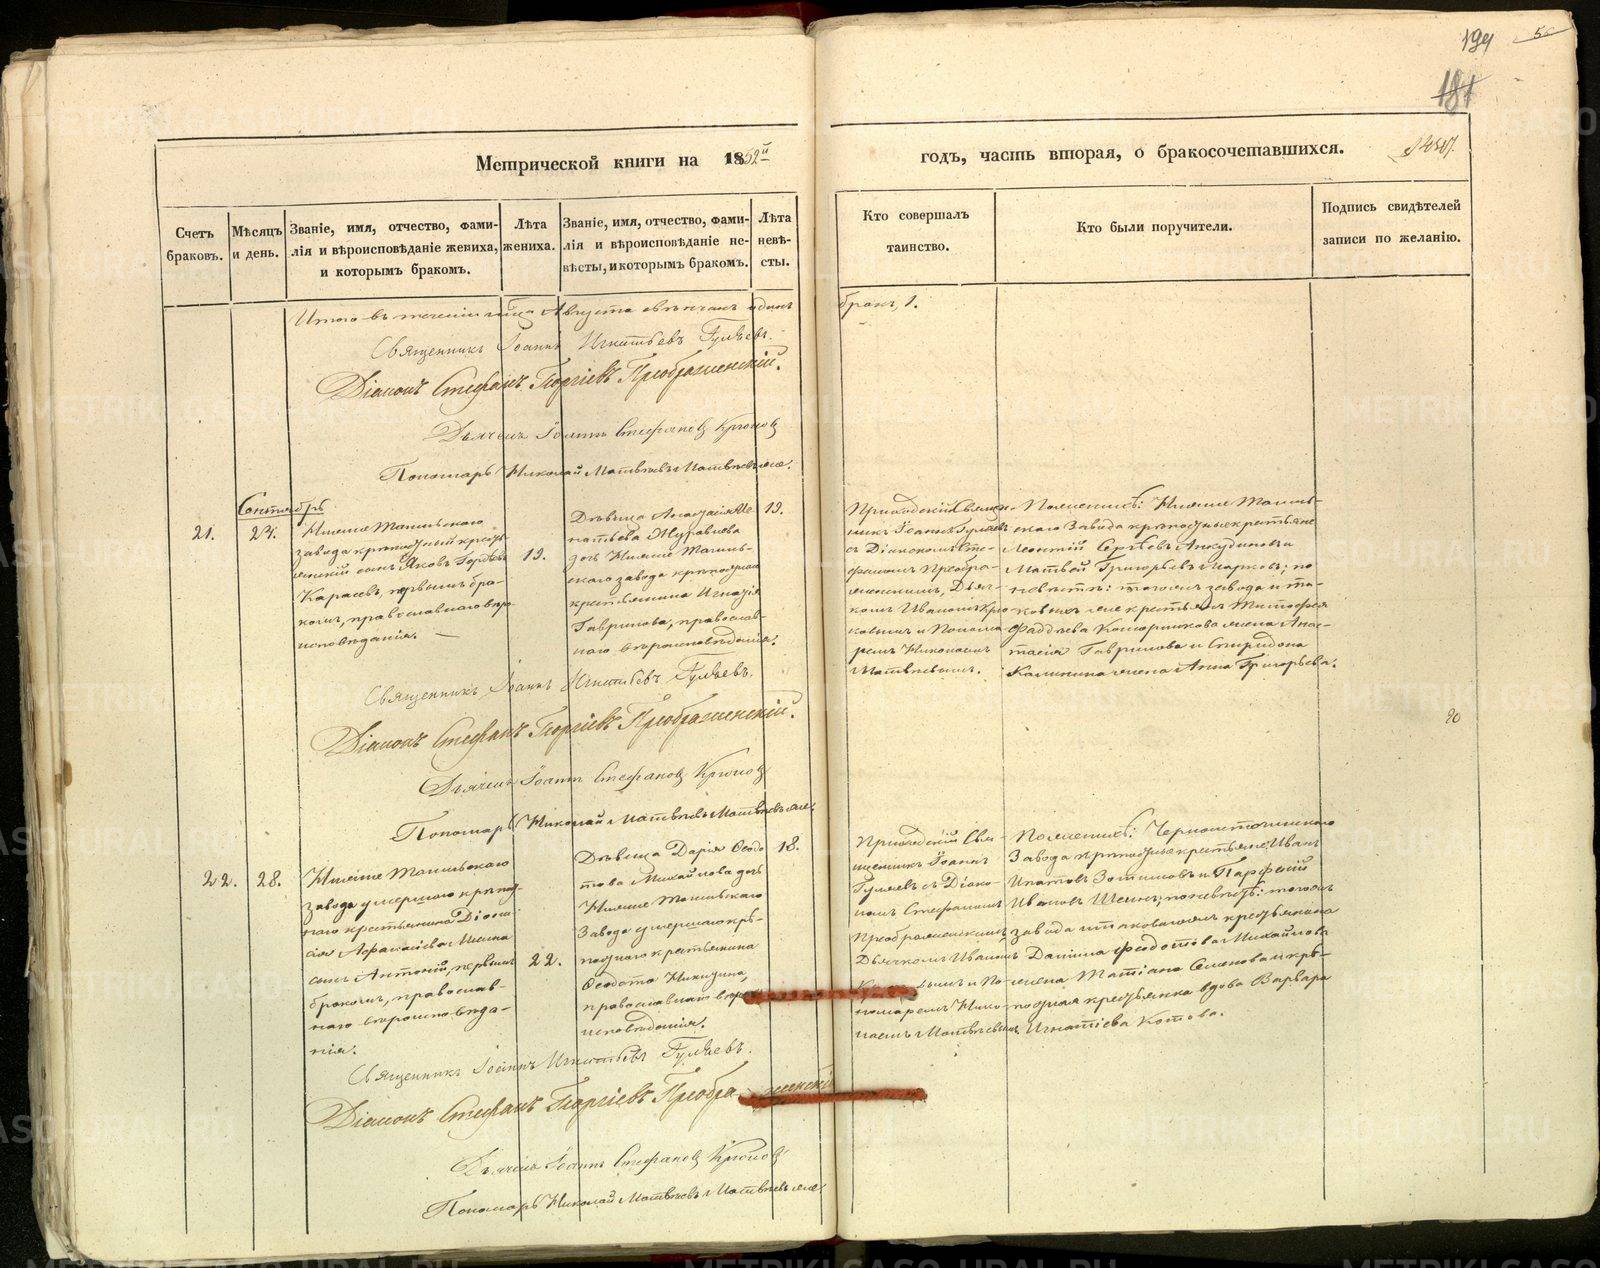 194
5
181
Метрической книги на 1852й
годъ, часть вторая, о бракосочетавшихся.
Счетъ браковъ.
Мѣсяцъ и день.
Званіе, имя, отчество, фами-
лія и вѣроисповѣданіе жениха,
и которымъ бракомъ.
Лѣта
жениха.
Званіе, имя, отчество, фами-
лія и вѣроисповѣданіе не-
вѣсты, и которымъ бракомъ.
Лѣта
невѣ-
сты.
Кто совершалъ
таинство.
Кто были поручители.
Подпись свидѣтелей
записи по желанію.
Итого въ теченіи м-ца Августа обвѣнчанъ одинъ
бракъ, 1.
Священникъ Іоаннъ Игнатьевъ Гуляевъ.
Діаконъ Стефанъ Георгіевъ Преображенскій.
Дьячекъ Іоаннъ Стефановъ Крюковъ
Пономарь Николай Матвѣевъ Матвѣевъ же.
Сентябрь
21.
24.
Нижне Тагильскаго
завода крѣпостный кресть-
янскій сынъ Яковъ Гордѣевъ
Карасевъ, первымъ бра-
комъ, православнаго вѣро-
исповѣданія.
19.
Дѣвица Анастасія Иг-
натьева Журавлева
дочь Нижне Тагиль-
скаго завода крѣпостнаго
крестьянина Игнатія
Гаврилова, православ-
наго вѣроисповѣданія.
19.
Приходскій Священ-
никъ Іоаннъ Гуляевъ
съ Діакономъ Сте-
фаномъ Преобра-
женскимъ, Дьяч-
комъ Иваномъ Крю-
ковымъ и Понома-
ремъ Николаемъ
Матвѣевымъ.
По женихѣ: Нижне Тагиль-
скаго Завода крѣпостные крестьяне
Леонтій Сергѣевъ Анкудиновъ и
Матвѣй Григорьевъ Марковъ; по
невѣстѣ: тогожъ завода и та-
ковыхъ же крестьянъ Митрофея
Фаддѣева жена Анас-
тасія Гаврилова и Спиридона
Калинина жена Анна Григорьева.
Священникъ Іоаннъ Игнатьевъ Гуляевъ.
Діаконъ Стефанъ Георгіевъ Преображенскій.
Дьячекъ Іоаннъ Стефановъ Крюковъ
Пономарь Николай Матвѣевъ Матвѣевъ же.
20
22.
28.
Нижне Тагильскаго
завода умершаго крѣпост-
наго крестьянина Діони-
сія Афанасіева Шеина
сынъ Антоній, первымъ
бракомъ, православ-
наго вѣроисповѣда-
нія.
22.
Дѣвица Дарія Ѳедо-
това Михайлова дочь
Нижне Тагильскаго
Завода умершаго крѣ-
постнаго крестьянина
Ѳедота Никитина,
православнаго вѣро-
исповѣданія.
18.
Приходскій Свя-
щенникъ Іоаннъ
Гуляевъ съ Діако-
номъ Стефаномъ
Преображенскимъ,
Дьячкомъ Иваномъ
Крюковымъ и По-
номаремъ Нико-
лаемъ Матвѣевымъ.
По женихѣ: Черноисточинскаго
Завода крѣпостные крестьяне Иванъ
Ипатовъ Зотиковъ и Парфеній
Ивановъ Шеинъ; по невѣстѣ: тогожъ
завода и таковаго же крестьянина
Данила Ѳедотова Михайлова
жена Татіана Семенова и крѣ-
постная крестьянка вдова Варвара
Игнатіева Котова.
Священникъ Іоаннъ Игнатьевъ Гуляевъ.
Діаконъ Стефанъ Георгіевъ Преображенскій
Дьячекъ Іоаннъ Стефановъ Крюковъ
Пономарь Николай Матвѣевъ Матвѣевъ же.
METRIKI.GASO-URAL.RU